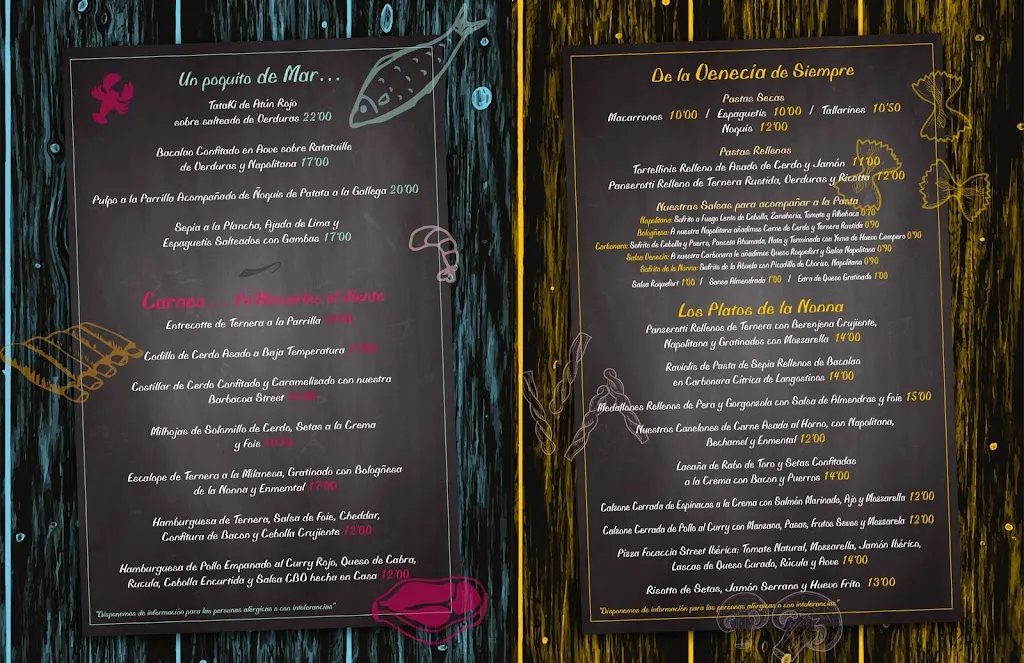 Un poquito de Mar...
TataKi de Atún Rojo
sobre salteado de Verduras 22'00
Bacalao Confitado en Aove sobre Ratatuille
de Verduras y Napolitana 17'00
Pulpo a la Parrilla Acompañado de Ñoquis de Patata a la Gallega 20'00
Sepia a la Plancha, Ajada de Lima y
Espaguetis Salteados con Gambas 17'00
Carnes... el diente
Entrecotte de Ternera a la Parrilla
Codillo de Cerdo Asado a Baja Temperatura
Costillar de Cerdo Confitado y Caramelizado con nuestra
Barbacoa Street
Milhojas de Solomillo de Cerdo, Setas a la Crema
y Foie
Escalope de Ternera a la Milanesa, Gratinado con Bologñesa
de la Nonna y Enmemtal 17'00
Hamburguesa de Ternera, Salsa de Foie, Cheddar,
Confitura de Bacon y Cebolla Crujiente
Hamburguesa de Pollo Empanado al Curry Rojo, Queso de Cabra,
Rucula, Cebolla Encurtida y Salsa CBO hecha en Casa 12'00
"Disponemos de información para las personas alérgicas o con intolerancias"
De la Venecia de Siempre
Pastas Secas
Macarrones 10'00 / Espaguetis 10'00 / Tallarines 10'50
Ñoquis 12'00
Pastas Rellenas
Tortellinis Relleno de Asado de Cerdo y Jamón 11'00
Panzerotti Relleno de Ternera Rustida, Verduras y Ricotta 12'00
Nuestras Salsas para acompañar a la Pasta
Napolitana: Sofrito a Fuego Lento de Cebolla, Zanahoria, Tomate y Albahaca 0'70
Bologñesa: A nuestra Napolitana añadimos Carne de Cerdo y Ternera Rustida 0'90
Carbonara: Sofrito de Cebolla y Puerro, Panceta Ahumada, Nata y Terminada con Yema de Huevo Campero 0'90
Salsa Venecia: A nuestra Carbonara le añadimos Queso Roquefort y Salsa Napolitana 0'90
Sofrito de la Nonna: Sofrito de la Abuela con Picadillo de Chorizo, Napolitana 0'90
Salsa Roquefort 1'00 / Sansa Almendrada 1'00 / Extra de Queso Gratinado 1'00
Los Platos de la Nonna
Panzerotti Rellenos de Ternera con Berenjena Crujiente,
Napolitana y Gratinados con Mozzarella 14'00
Raviolis de Pasta de Sepia Rellenos de Bacalao
en Carbonara Cítrica de Langostinos 14'00
Medallones Rellenos de Pera y Gorgonzola con Salsa de Almendras y Foie 15'00
Nuestros Canelones de Carne Asada al Horno, con Napolitana,
Bechamel y Enmental 12'00
Lasaña de Rabo de Toro y Setas Confitadas
a la Crema con Bacon y Puerros 14'00
Calzone Cerrada de Espinacas a la Crema con Salmón Marinado, Ajo y Mozzarella 12'00
Calzone Cerrada de Pollo al Curry con Manzana, Pasas, Frutos Secos y Mozzarela 12'00
Pizza focaccia Street Ibérica: Tomate Natural, Mozzarella, Jamón Ibérico,
Lascas de Queso Curado, Rúcula y Aove 14'00
Risotto de Setas, Jamón Serrano y Huevo Frito 13'00
"Disponemos de información para las personas alérgicas o con intolerancias"